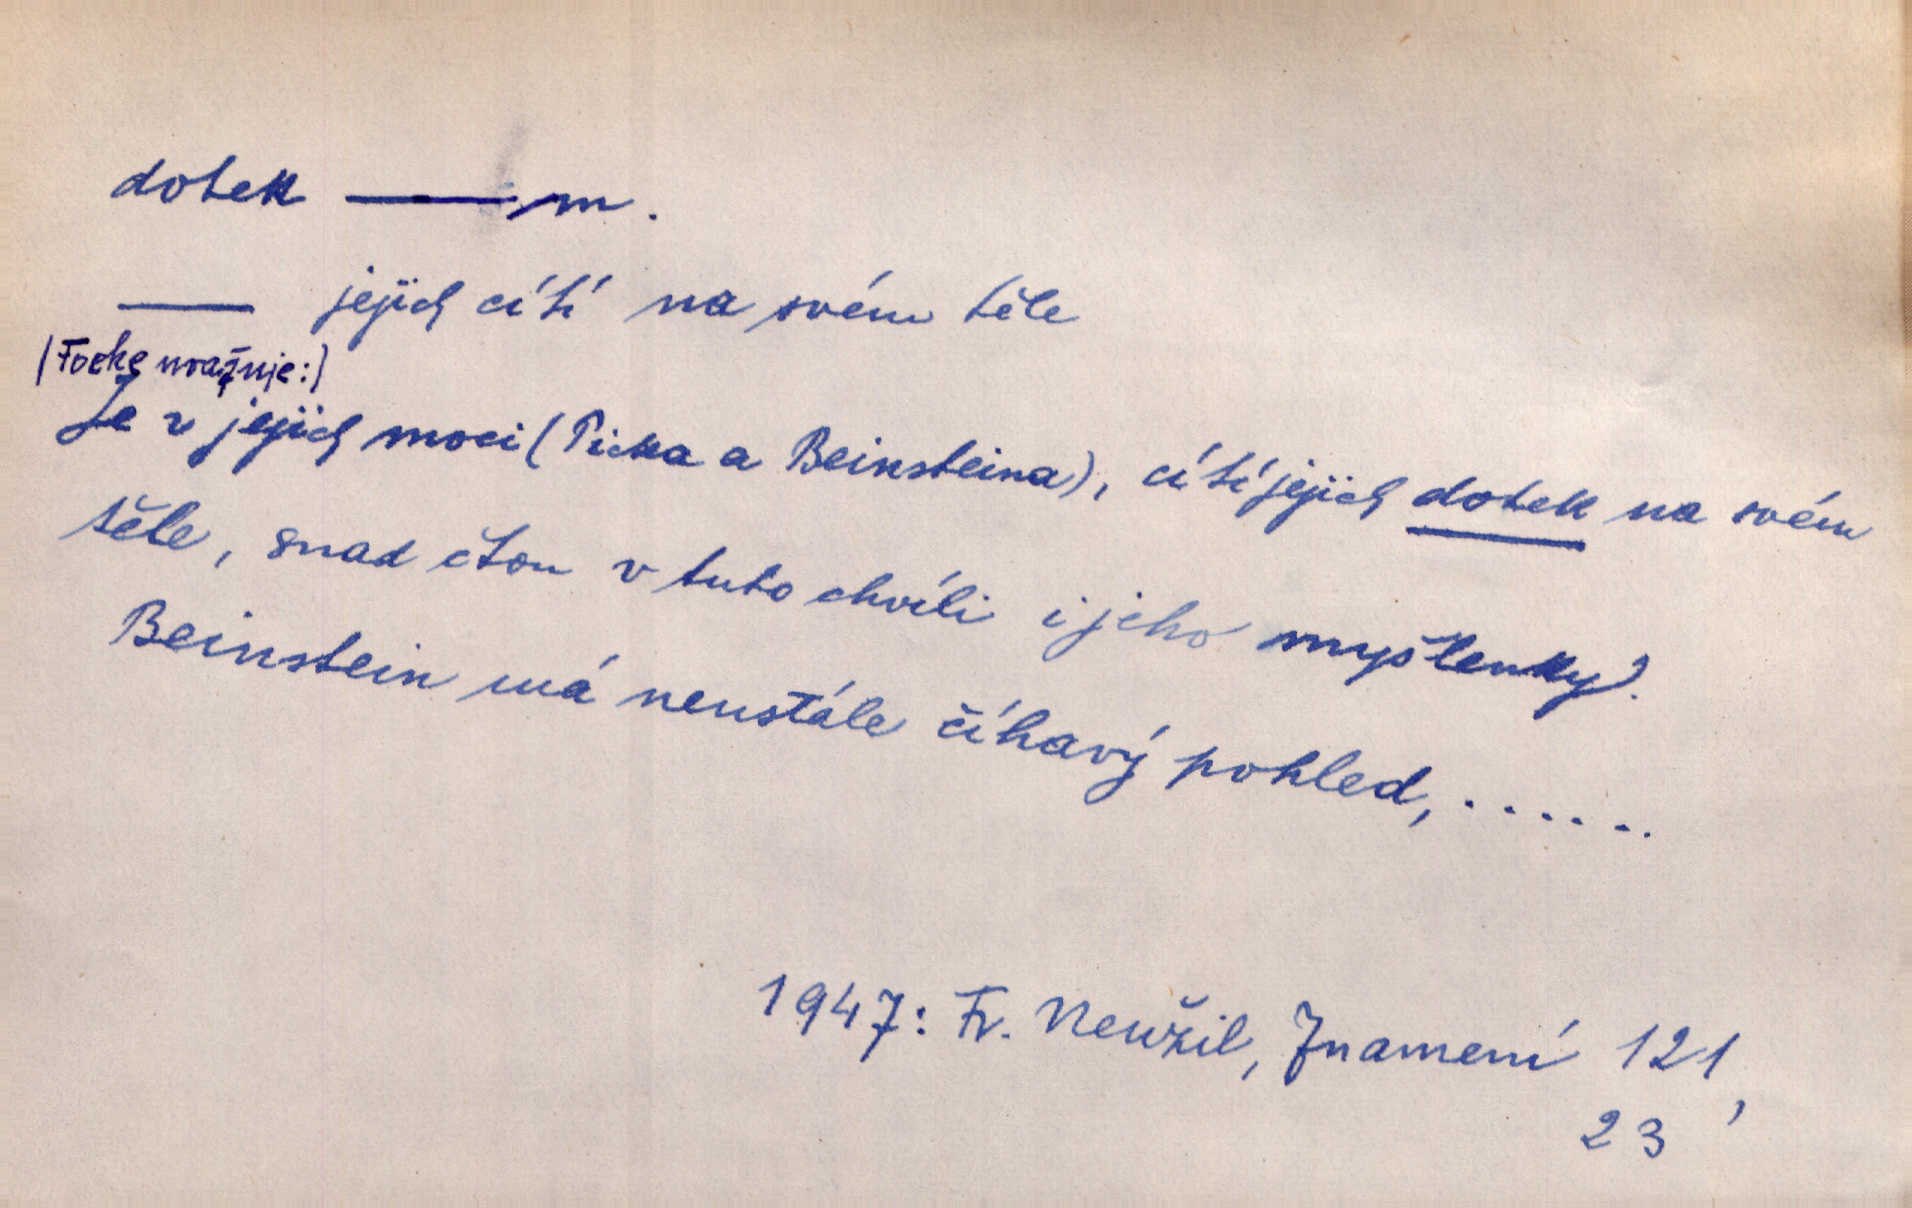 dotek ——— m.
——— jejich cítí na svém těle
(Focke uvažuje:)
Je v jejich moci (Picka a Beinsteina), cítí jejich dotek na svém
těle, snad čtou v tuto chvíli i jeho myšlenky?
Beinstein má neustále číhavý pohled, .......
1947: Fr. Neužil, Znamení 121,
23